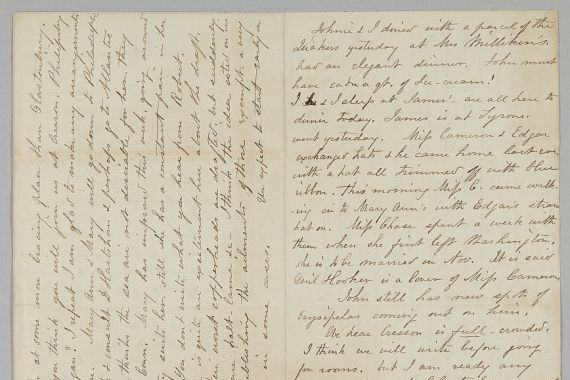 Johnie & I dined with a parcel of the
Quakers yesterday at Mrs Milliken's.
had an elegant dinner. John must
have eaten a qt. of Ice-cream!
& I sleep at James' - are all here to
dinner today. James is at Tyrone.
went yesterday. Miss Cameron & Edgar
exchanged hats & she came home last eve
with a hat all trimmed off with blue
ribbon. This morning Miss C- came walk-
ing in to Mary Ann's with Edgar's straw
hat on. Miss Chase spent a week with
them when she first left Washington,
she is to be married in Nov. It is said
Gen'l Hooker is a lover of Miss Cameron
John still has new spots of
Erysipelas coming out on him.
We hear Cresson is full - crowded.
I think we will write before going
for rooms. but I am ready any
at some more bracing place than Glastonbury.
you think you will join at
again? I repeat I am glad to making arrangements
Mary Ann & Mary will go down to Philadelphia
& consult & perhaps go to Atlantic
thinks the sea air is not desirable for her. they
Mary has improved this week, going around
some, but she has a constant pain in her
what you hear from Robert.
is quite an excitement here about the draft.
most copperheads are drafted, and suddenly
lame &c - I think the idea acted on in
publishing the ailments of those exempt a very
in some cases.
We expect to start early in